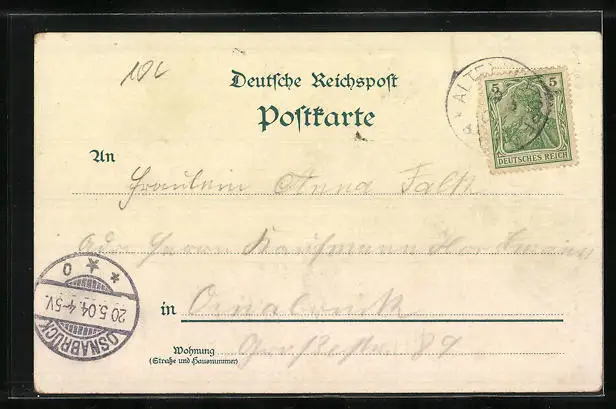 Deutsche Reichspost
Postkarte
ALTE
5 5
DEUTSCHES REICH
An
Fräulein Anna Falk
Adr Herrn Kaufmann
20.5.04.4-5V.
OSNABRÜCK
in Osnabrück
Wohnung
(Straße und Hausnummer)
89